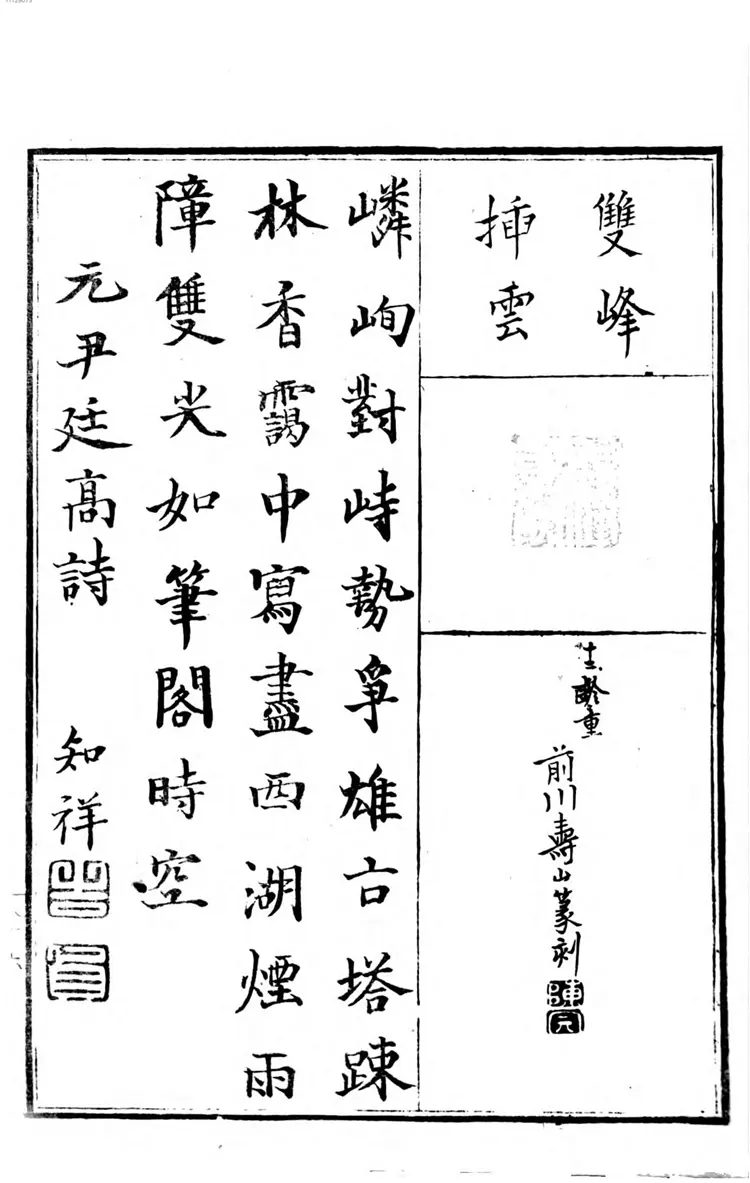 雙峰
插雲
十二齡童
前川壽山篆刻
陳元
嶙峋對峙勢爭雄古塔踈
林杳靄中寫盡西湖煙雨
障雙尖如筆閣時空
元尹廷高詩
知祥